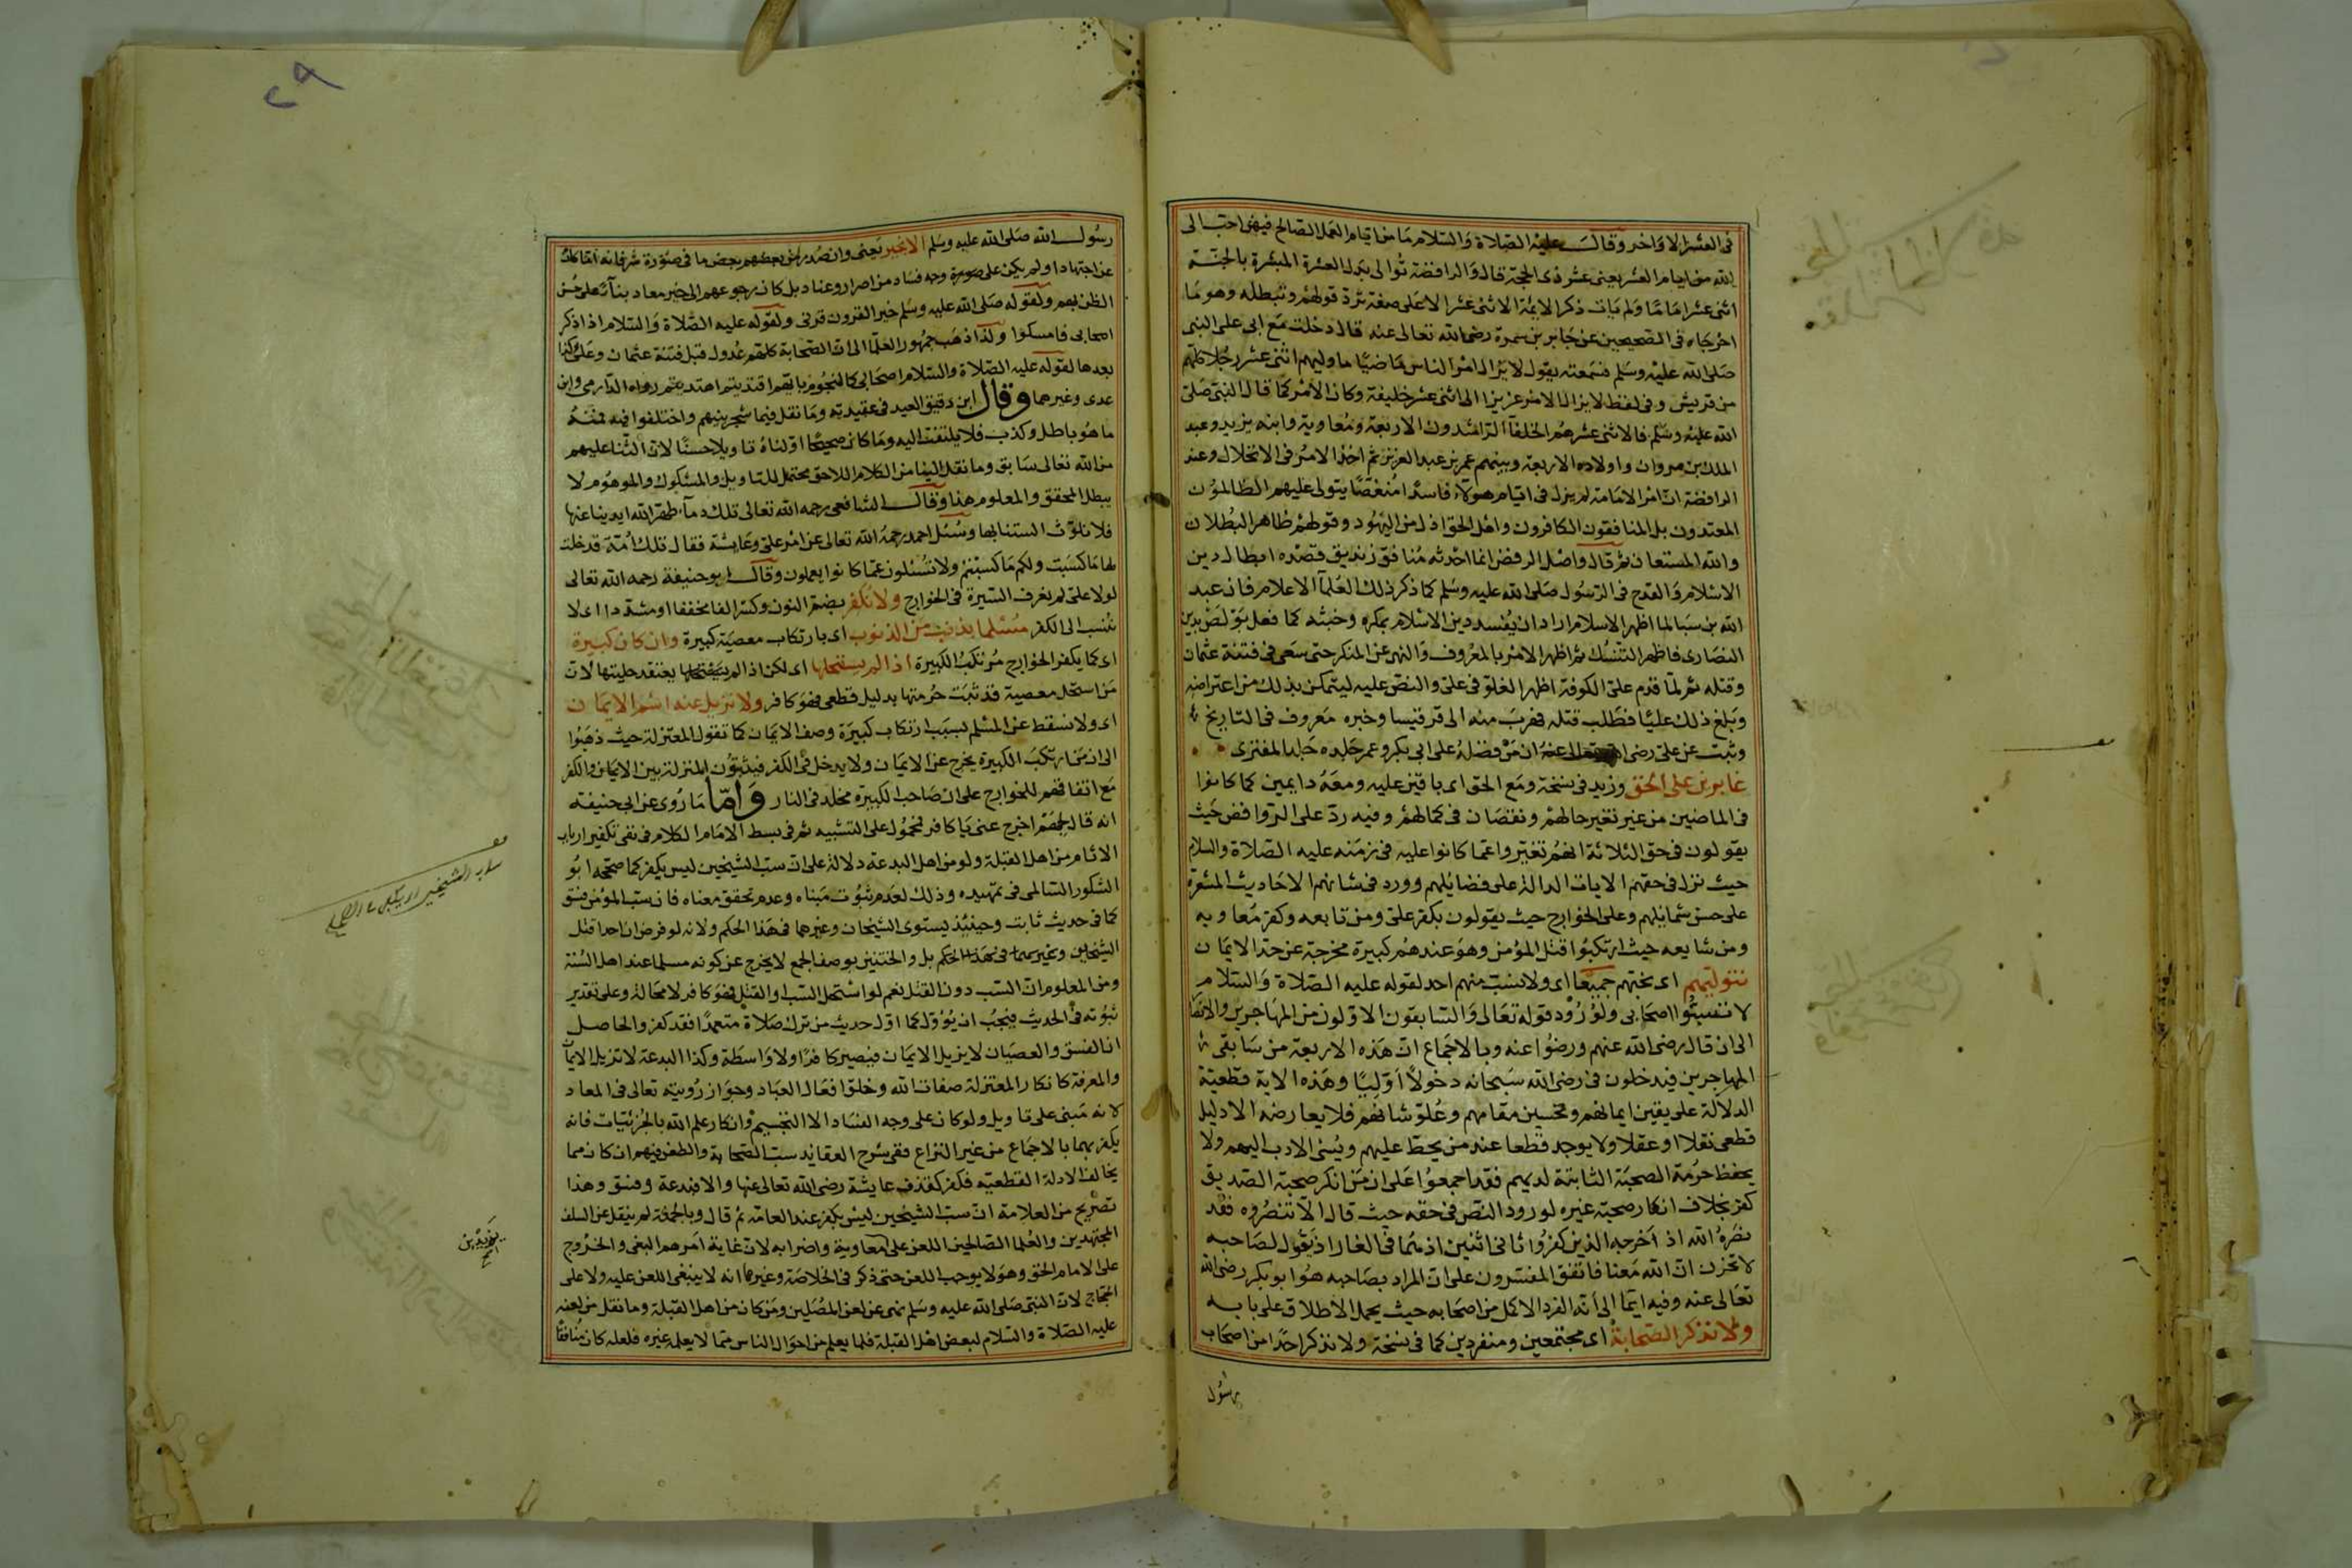 في العشر الاواخر وقال عليه الصلاة والسلام ما من ايام العمل الصالح فيهن احب الى
الله من ايام العشر يعنى عشر ذى الحجة قال والرافضة توالى بدل العشرة المبشرة بالجنة
اثنى عشر اماما ولم يات ذكر الايمة الاثنى عشر الا على صفة ترد قولهم وتبطله وهو ما
اخرجاه فى الصحيحين عن جابر بن سمرة رضى الله تعالى عنه قال دخلت مع ابى على النبى
صلى الله عليه وسلم فسمعته يقول لا يزال امر الناس ماضيا ما وليهم اثنى عشر رجلا كلهم
من قريش وفى لفظ لا يزال الامر عزيزا الى اثنى عشر خليفة وكان الامر كما قال النبى صلى
الله عليه وسلم فالاثنى عشر هم الخلفا الراشدون الاربعة ومعاوية وابنه يزيد وعبد
الملك بن مروان واولاده الاربعة وبينهم عمر بن عبد العزيز ثم اخذ الامر فى الانحلال وعند
الرافضة ان امر الامامة لم يزل فى ايام هولاء فاسدا منغصا يتولى عليهم الظالمون
المعتدون بل المنافقون الكافرون واهل الحق اذل من اليهود وقولهم ظاهر البطلان
والله المستعان ثم قال واصل الرفض انما احدثه منافق زنديق قصده ابطال دين
الاسلام والقدح فى الرسول صلى الله عليه وسلم كما ذكر ذلك العلما الاعلام فان عبد
الله بن سبا لما اظهر الاسلام اراد ان يفسد دين الاسلام بمكره وخبثه كما فعل بولص بدين
النصارى فاظهر التنسك ثم اظهر الامر بالمعروف والنهى عن المنكر حتى سعى فى فتنة عثمان
وقتله ثم لما قدم على الكوفة اظهر الغلو فى على والنص عليه ليتمكن بذلك من اعتراضه
وبلغ ذلك عليا فطلب قتله فهرب منه الى قرقيسا وخبره معروف فى التاريخ
وثبت عن على رضى الله تعالى عنه ان من فضله على ابى بكر وعمر جلده جلد المفترى
غابرين على الحق وزيد فى نسخة ومع الحق اى باقين عليه ومعه دايمين كما كانوا
فى الماضين من غير تغير حالهم ونقصان فى كمالهم وفيه رد على الروافض حيث
يقولون فى حق الثلاثة انهم تغيروا عما كانوا عليه فى زمنه عليه الصلاة والسلام
حيث نزل فى حقهم الايات الدالة على فضايلهم وورد فى شانهم الاحاديث المشعرة
على حسن شمايلهم وعلى الخوارج حيث يقولون بكفر على ومن تابعه وكفر معاويه
ومن شايعه حيث ارتكبوا قتل المؤمن وهو عندهم كبيرة مخرجة عن حد الايمان
نتوليهم اى نحبهم جميعا اى ولا نسب منهم احد لقوله عليه الصلاة والسلام
لا تسبوا اصحابى ولورود قوله تعالى والسابقون الاولون من المهاجرين والانصار
الى ان قال رضى الله عنهم ورضوا عنه وبالاجماع ان هذه الاربعة من سابقى
المهاجرين فيدخلون فى رضى الله سبحانه دخولا اوليا وهذه الاية قطعية
الدلالة على يقين ايمانهم وتحسين مقامهم وعلو شانهم فلا يعارضه الا دليل
قطعى نقلا او عقلا ولا يوجد قطعا عند من يحط عليهم ويسى الادب اليهم ولا
يحفظ حرمة الصحبة الثابتة لديهم فقد اجمعوا على ان من انكر صحبة الصديق
كفر بخلاف انكار صحبة غيره لورود النص فى حقه حيث قال الا تنصروه فقد
نصره الله اذ اخرجه الذين كفروا ثانى اثنين اذ هما فى الغار اذ يقول لصاحبه
لا تحزن ان الله معنا فاتفق المفسرون على ان المراد بصاحبه هو ابو بكر رضى الله
تعالى عنه وفيه ايما الى انه الفرد الاكمل من اصحابه حيث يحمل الاطلاق على بابه
ولا نذكر الصحابة اى مجتمعين ومنفردين كما فى نسخة ولا نذكر احدا من اصحاب
رسول
رسول الله صلى الله عليه وسلم الا بخير يعنى وان صدر من بعضهم بعض ما فى صورة شر فانه اما كان
عن اجتهاد او لم يكن على صورة وجه فساد من اصرار وعناد بل كان رجوعهم الى خير معاد بنآ على حسن
الظن بهم ولقوله صلى الله عليه وسلم خير القرون قرنى ولقوله عليه الصلاة والسلام اذا ذكر
اصحابى فامسكوا ولذا ذهب جمهور العلما الى ان الصحابة كلهم عدول قبل فتنة عثمان وعلى وكذا
بعدها لقوله عليه الصلاة والسلام اصحابى كالنجوم بايهم اقتديتم اهتديتم رواه الدارمى وابن
عدى وغيرهما وقال ابن دقيق العيد فى عقيدته وما نقل فيما شجر بينهم واختلفوا فيه فمنه
ما هو باطل وكذب فلا يلتفت اليه وما كان صحيحا اولناه تاويلا حسنا لان الثنا عليهم
من الله تعالى سابق وما نقل الينا من الكلام اللاحق محتمل للتاويل والمشكوك والموهوم لا
يبطل المحقق والمعلوم هذا وقال الشافعى رحمه الله تعالى تلك دمآ طهر الله ايدينا عنها
فلا نلوث السنتنا بها وسئل احمد رحمه الله تعالى عن امر على وعايشة فقال تلك امة قد خلت
لها ما كسبت ولكم ما كسبتم ولا تسئلون عما كانوا يعملون وقال ابو حنيفة رحمه الله تعالى
لولا على لم يعرف السيرة فى الخوارج ولا نكفر بضم النون وكسر الفا مخففا او مشددا اى لا
ننسب الى الكفر مسلما بذنب من الذنوب اى بارتكاب معصية كبيرة وان كان كبيرة
اى كما يكفر الخوارج مرتكب الكبيرة اذا لم يستحلها اى لكن اذا لم يستحلها يعتقد حليتها لان
من استحل معصية قد ثبت حرمتها بدليل قطعى فهو كافر ولا نزيل عنه اسم الايمان
اى ولا نسقط عن المسلم بسبب ارتكاب كبيرة وصف الايمان كما تقول المعتزلة حيث ذهبوا
الى ان مرتكب الكبيرة يخرج عن الايمان ولا يدخل فى الكفر فيثبتون المنزلة بين الايمان والكفر
مع اتفاقهم للخوارج على ان صاحب الكبيرة مخلد فى النار واما ما روى عن ابى حنيفة
انه قال لجهم اخرج عنى يا كافر فمحمول على التشبيه ثم فى بسط الامام الكلام فى نفى تكفير ارباب
الاثام من اهل القبلة ولو من اهل البدعة دلالة على ان سب الشيخين ليس بكفر كما صححه ابو
الشكور السالمى فى تمهيده وذلك لعدم ثبوت مبناه وعدم تحقق معناه فان سب المؤمن فسق
كما فى حديث ثابت وحينئذ يستوى الشيخان وغيرهما فى هذا الحكم ولانه لو فرض ان احدا قتل
الشيخين وغيرهما فى هذا الحكم بل والختنين بوصف الجمع لا يخرج عن كونه مسلما عند اهل السنة
ومن المعلوم ان السب دون القتل نعم لو استحل السب او القتل فهو كافر لا محالة وعلى تقدير
ثبوته فى الحديث فيجب ان يؤول كما اول حديث من ترك صلاة متعمدا فقد كفر والحاصل
ان الفسق والعصيان لا يزيل الايمان فيصير كافرا ولا واسطة وكذا البدعة لا تزيل الايمان
والمعرفة كانكار المعتزلة صفات الله وخلق افعال العباد وجواز رؤيته تعالى فى المعاد
لانه مبنى على تاويل ولو كان على وجه الفساد الا التجسيم وانكار علم الله بالجزئيات فانه
يكفر بهما بالاجماع من غير النزاع ففى شرح العقايد سب الصحابة والطعن فيهم ان كان مما
يخالف الادلة القطعيه فكفر كقذف عايشة رضى الله تعالى عنها والا فبدعة وفسق وهذا
تصريح من العلامة ان سب الشيخين ليس بكفر عند العامة ثم قال وبالجملة لم ينقل عن السلف
المجتهدين والعلما الصالحين اللعن على معاوية واضرابه لان غاية امرهم البغى والخروج
على الامام الحق وهو لا يوجب اللعن حتى ذكر فى الخلاصة وغيرها انه لا ينبغى اللعن عليه ولا على
الحجاج لان النبى صلى الله عليه وسلم نهى عن لعن المصلين ومن كان من اهل القبلة وما نقل من لعنه
عليه الصلاة والسلام لبعض اهل القبلة فلما يعلم من احوال الناس مما لا يعلمه غيره فلعله كان منافقا